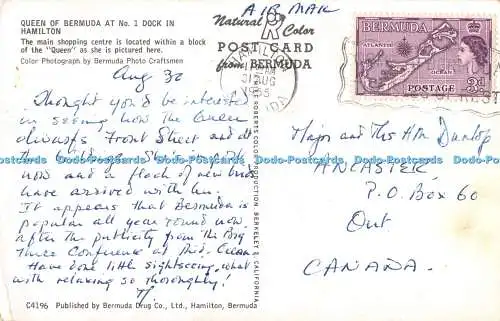 QUEEN OF BERMUDA AT No. 1 DOCK IN
HAMILTON
The main shopping centre is located within a block
of the "Queen" as she is pictured here.
Color Photograph by Bermuda Photo Craftsmen
Aug 30
Thought you'd be interested
in seeing how the Queen
dwarfs Front Street and all
the
now and a flock of new brides
have arrived with her.
It appears that Bermuda is
popular all year round now
after the publicity from the Big
Three Conference at Mid. Ocean
Have done little sightseeing, what
with relaxing so thoroughly!
C4196 Published by Bermuda Drug Co., Ltd., Hamilton, Bermuda
ROBERTS COLOR PRODUCTION, BERKELEY 2, CALIFORNIA
AIR MAIL
Natural Color
POST CARD
from BERMUDA
HAMILTON
31 AUG
BERMUDA
BERMUDA
ATLANTIC
OCEAN
POSTAGE
3d
Major and Mrs Dunlop
ANCASTER
P.O. Box 60
Ont.
CANADA.
www.Postcards